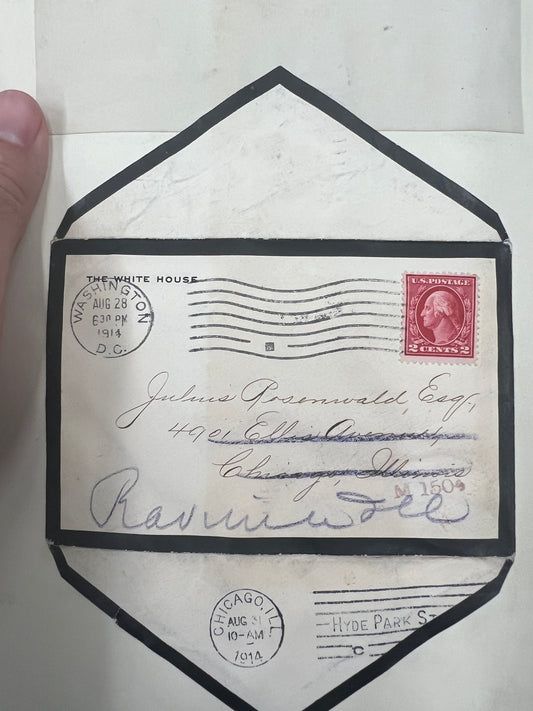 THE WHITE HOUSE
WASHINGTON
AUG 28
630 PM
1914
D.C.
U.S. POSTAGE
2 CENTS 2
Julius Rosenwald, Esq,
4901 Ellis Avenue,
Chicago, Illinois
M 1504
CHICAGO, ILL.
AUG 31
10-AM
1914
HYDE PARK ST
C